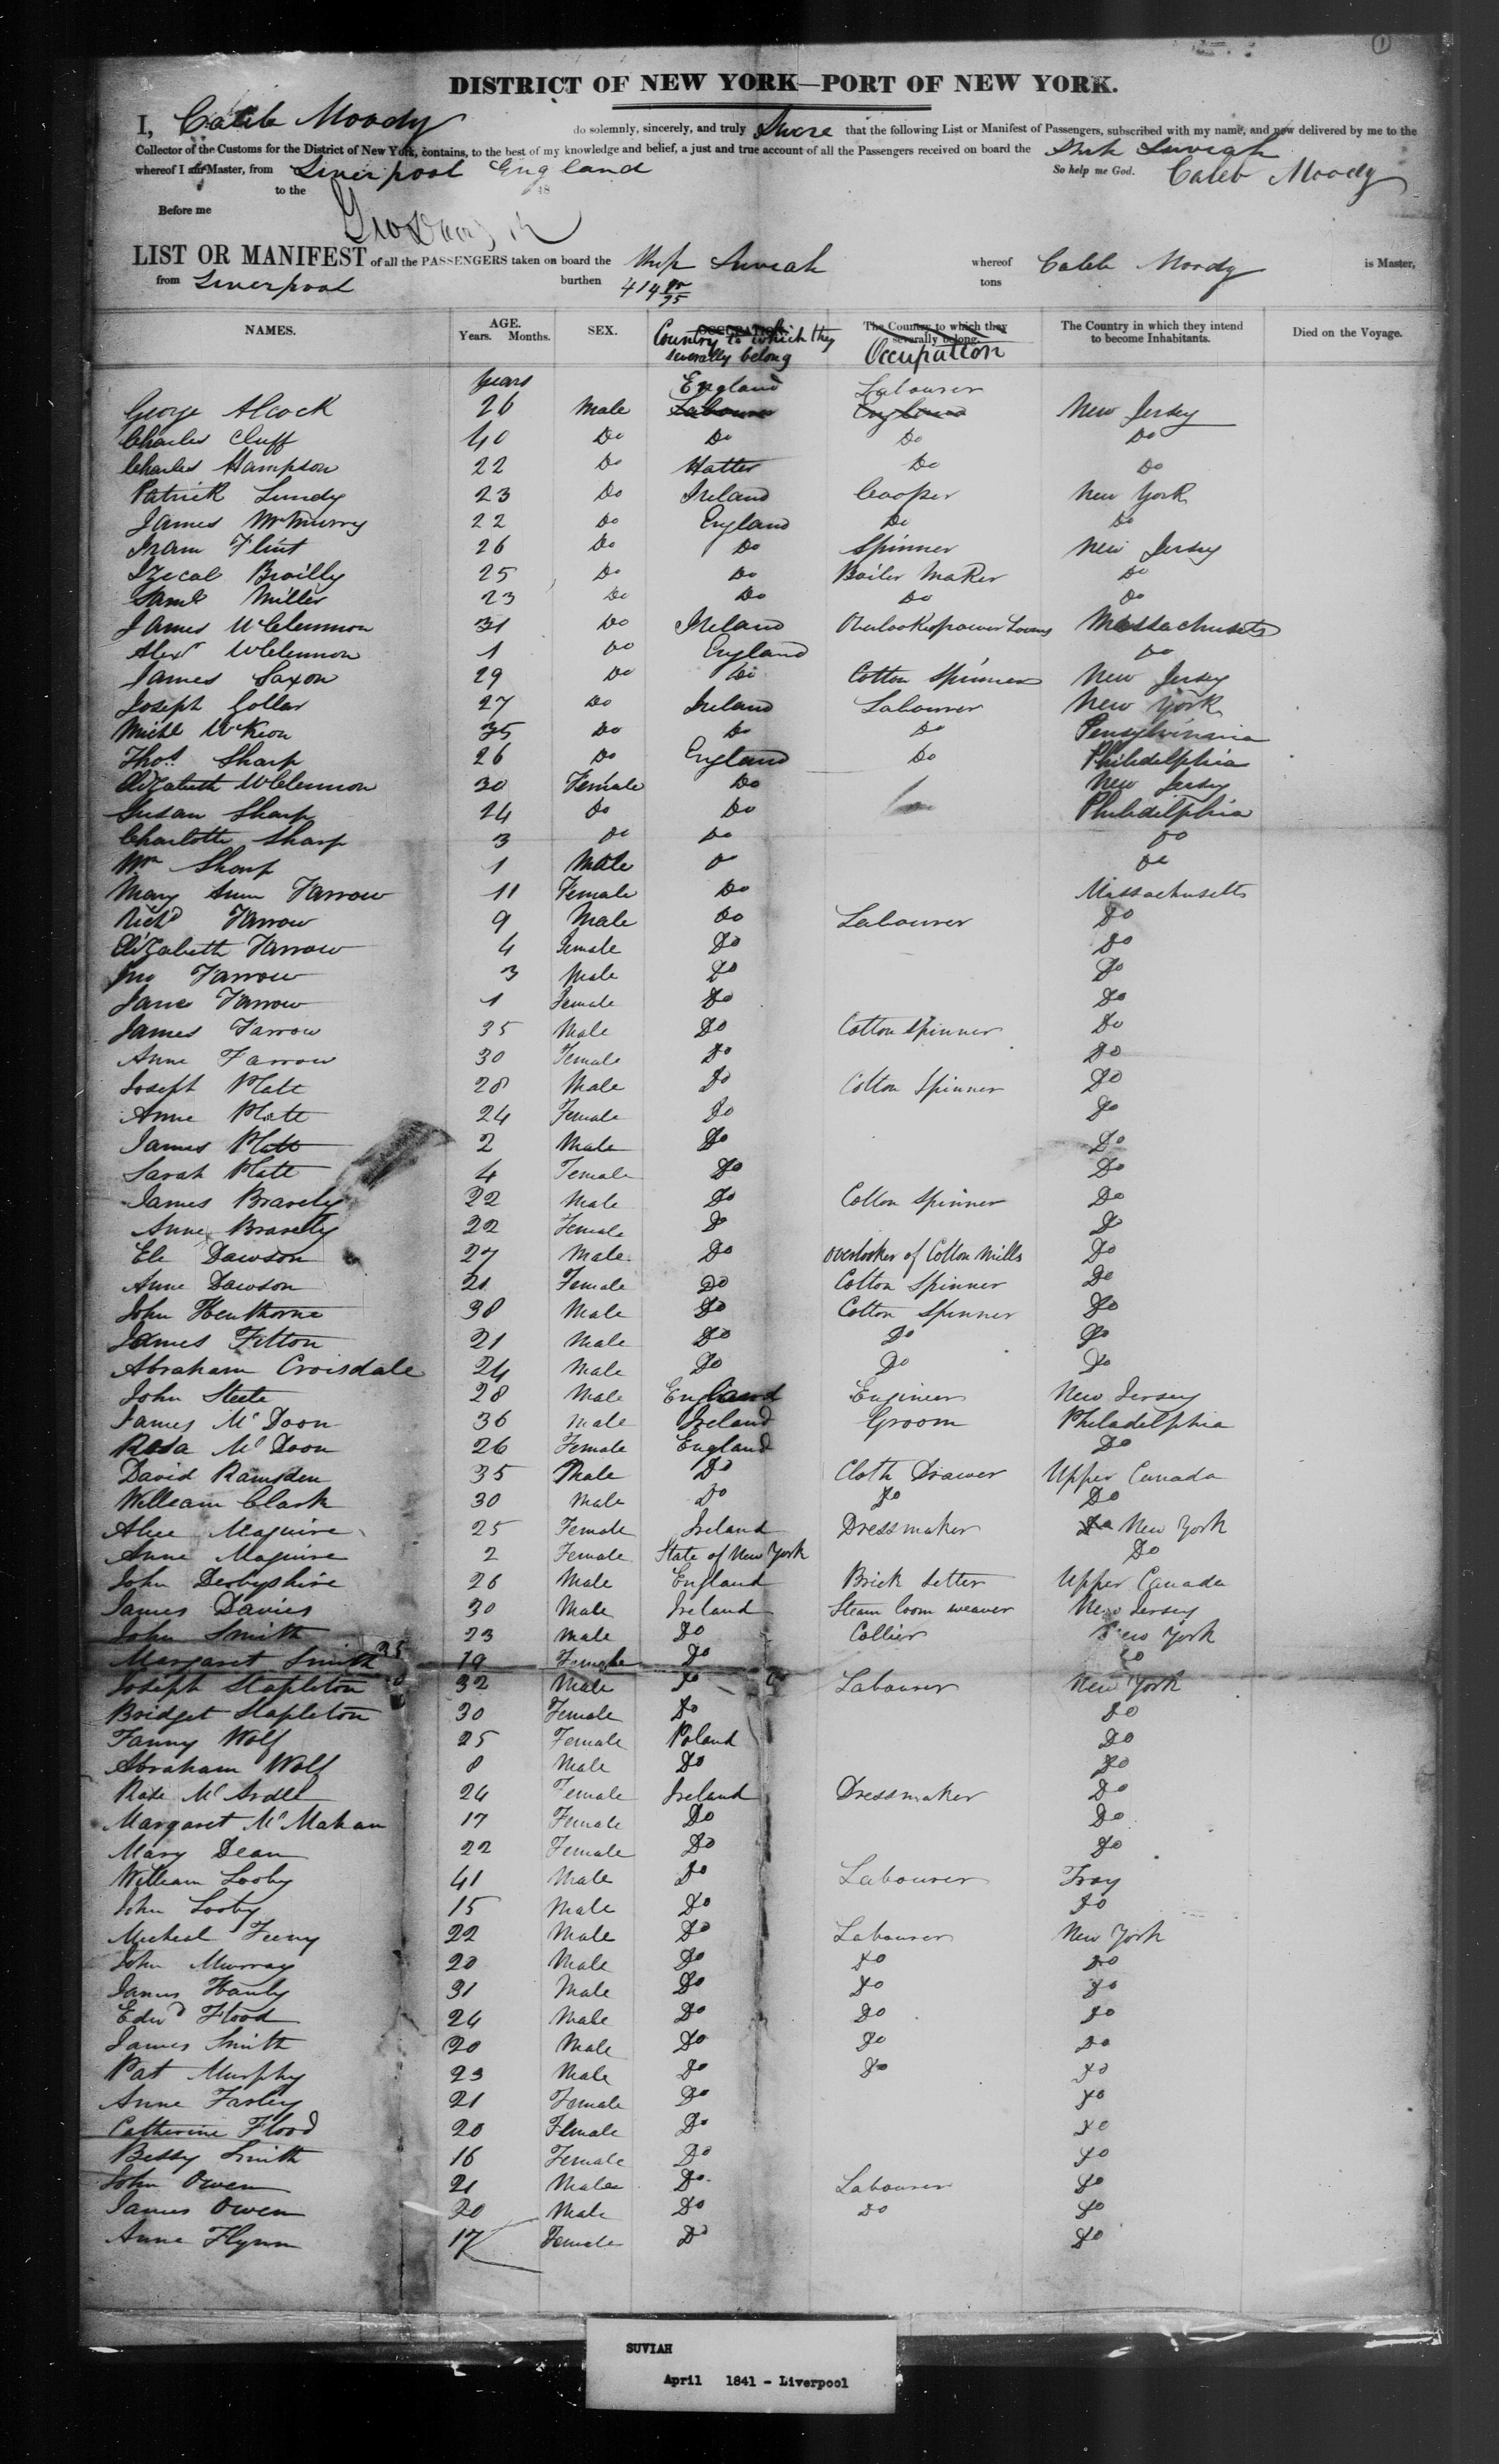 1
DISTRICT OF NEW YORK—PORT OF NEW YORK.
I, Caleb Moody do solemnly, sincerely, and truly Swere that the following List or Manifest of Passengers, subscribed with my name, and now delivered by me to the
Collector of the Customs for the District of New York, contains, to the best of my knowledge and belief, a just and true account of all the Passengers received on board the Ship Suviah
whereof I am Master, from Liverpool England So help me God. Caleb Moody
to the 18
Before me
LIST OR MANIFEST of all the PASSENGERS taken on board the Ship Suviah whereof Caleb Moody is Master,
from Liverpool burthen 414 tons
NAMES. AGE. Years. Months. SEX. OCCUPATION. Country to which they severally belong The Country to which they severally belong. Occupation The Country in which they intend to become Inhabitants. Died on the Voyage.
years England Labourer
George Alcock 26 Male Labourer England New Jersey
Charles Cluff 40 Do Do Do Do
Charles Hampson 22 Do Hatter Do Do
Patrick Lundy 23 Do Ireland Cooper New York
James McMurry 22 Do England Do Do
Iram Flint 26 Do Do Spinner New Jersey
Brailly 25 Do Do Boiler Maker Do
Saml Miller 23 Do Do Do Do
James McClennon 31 Do Ireland Massachusets
Alexr McClennon 1 Do England Do
James Saxon 29 Do Do Cotton Spinner New Jersey
Joseph Gollar 27 Do Ireland Labourer New York
Michl McKeon 35 Do Do Do Pensylvinnia
Thos. Sharp 26 Do England Do Philidelphia
Elizabeth McClennon 30 Female Do New Jersey
Susan Sharp 24 Do Do Philidelphia
Charlotte Sharp 3 Do Do Do
Wm Sharp 1 Male Do Do
Mary Ann Farrow 11 Female Do Massachusetts
Richd Farrow 9 Male Do Labourer Do
Elizabeth Farrow 4 Female Do Do
Jno Farrow 3 Male Do Do
Jane Farrow 1 Female Do Do
James Farrow 35 Male Do Cotton Spinner Do
Anne Farrow 30 Female Do Do
Joseph Platt 28 Male Do Cotton Spinner Do
Anne Platt 24 Female Do Do
James Platt 2 Male Do Do
Sarah Platt 4 Female Do Do
James Bravely 22 Male Do Cotton Spinner Do
Anne Bravely 22 Female Do Do
Eli Dawson 27 Male Do Overlooker of Cotton Mills Do
Anne Dawson 21 Female Do Cotton Spinner Do
John Henthorne 38 Male Do Cotton Spinner Do
James Fitton 21 Male Do Do Do
Abraham Croisdale 24 Male Do Do Do
John Steele 28 Male England Engineer New Jersey
James McDoon 36 Male Ireland Groom Philadelphia
Rosa McDoon 26 Female England Do
David Ramsden 35 Male Do Cloth Drawer Upper Canada
William Clark 30 Male Do Do Do
Alice Maguire 25 Female Ireland Dressmaker Do New York
Anne Maguire 2 Female State of New York Do
John Derbyshire 26 Male England Brick Setter Upper Canada
James Davies 30 Male Ireland Steam loom weaver New Jersey
John Smith 23 Male Do Collier New York
Margaret Smith 19 Female Do Do
Joseph Stapleton 32 Male Do Labourer New York
Bridget Stapleton 30 Female Do Do
Fanny Wolf 25 Female Poland Do
Abraham Wolf 8 Male Do Do
Rose McArdle 24 Female Ireland Dressmaker Do
Margaret McMahan 17 Female Do Do
Mary Dean 22 Female Do Do
William Looby 41 Male Do Labourer Troy
John Looby 15 Male Do Do
Micheal Feeny 22 Male Do Labourer New York
John Murray 20 Male Do Do Do
James Hanly 31 Male Do Do Do
Edwd Flood 24 Male Do Do Do
James Smith 20 Male Do Do Do
Pat Murphy 23 Male Do Do Do
Anne Farley 21 Female Do Do
Catherine Flood 20 Female Do Do
Bessy Smith 16 Female Do Do
John Owen 21 Male Do Labourer Do
James Owen 20 Male Do Do Do
Anne Flynn 17 Female Do Do
SUVIAH
April 1841 - Liverpool